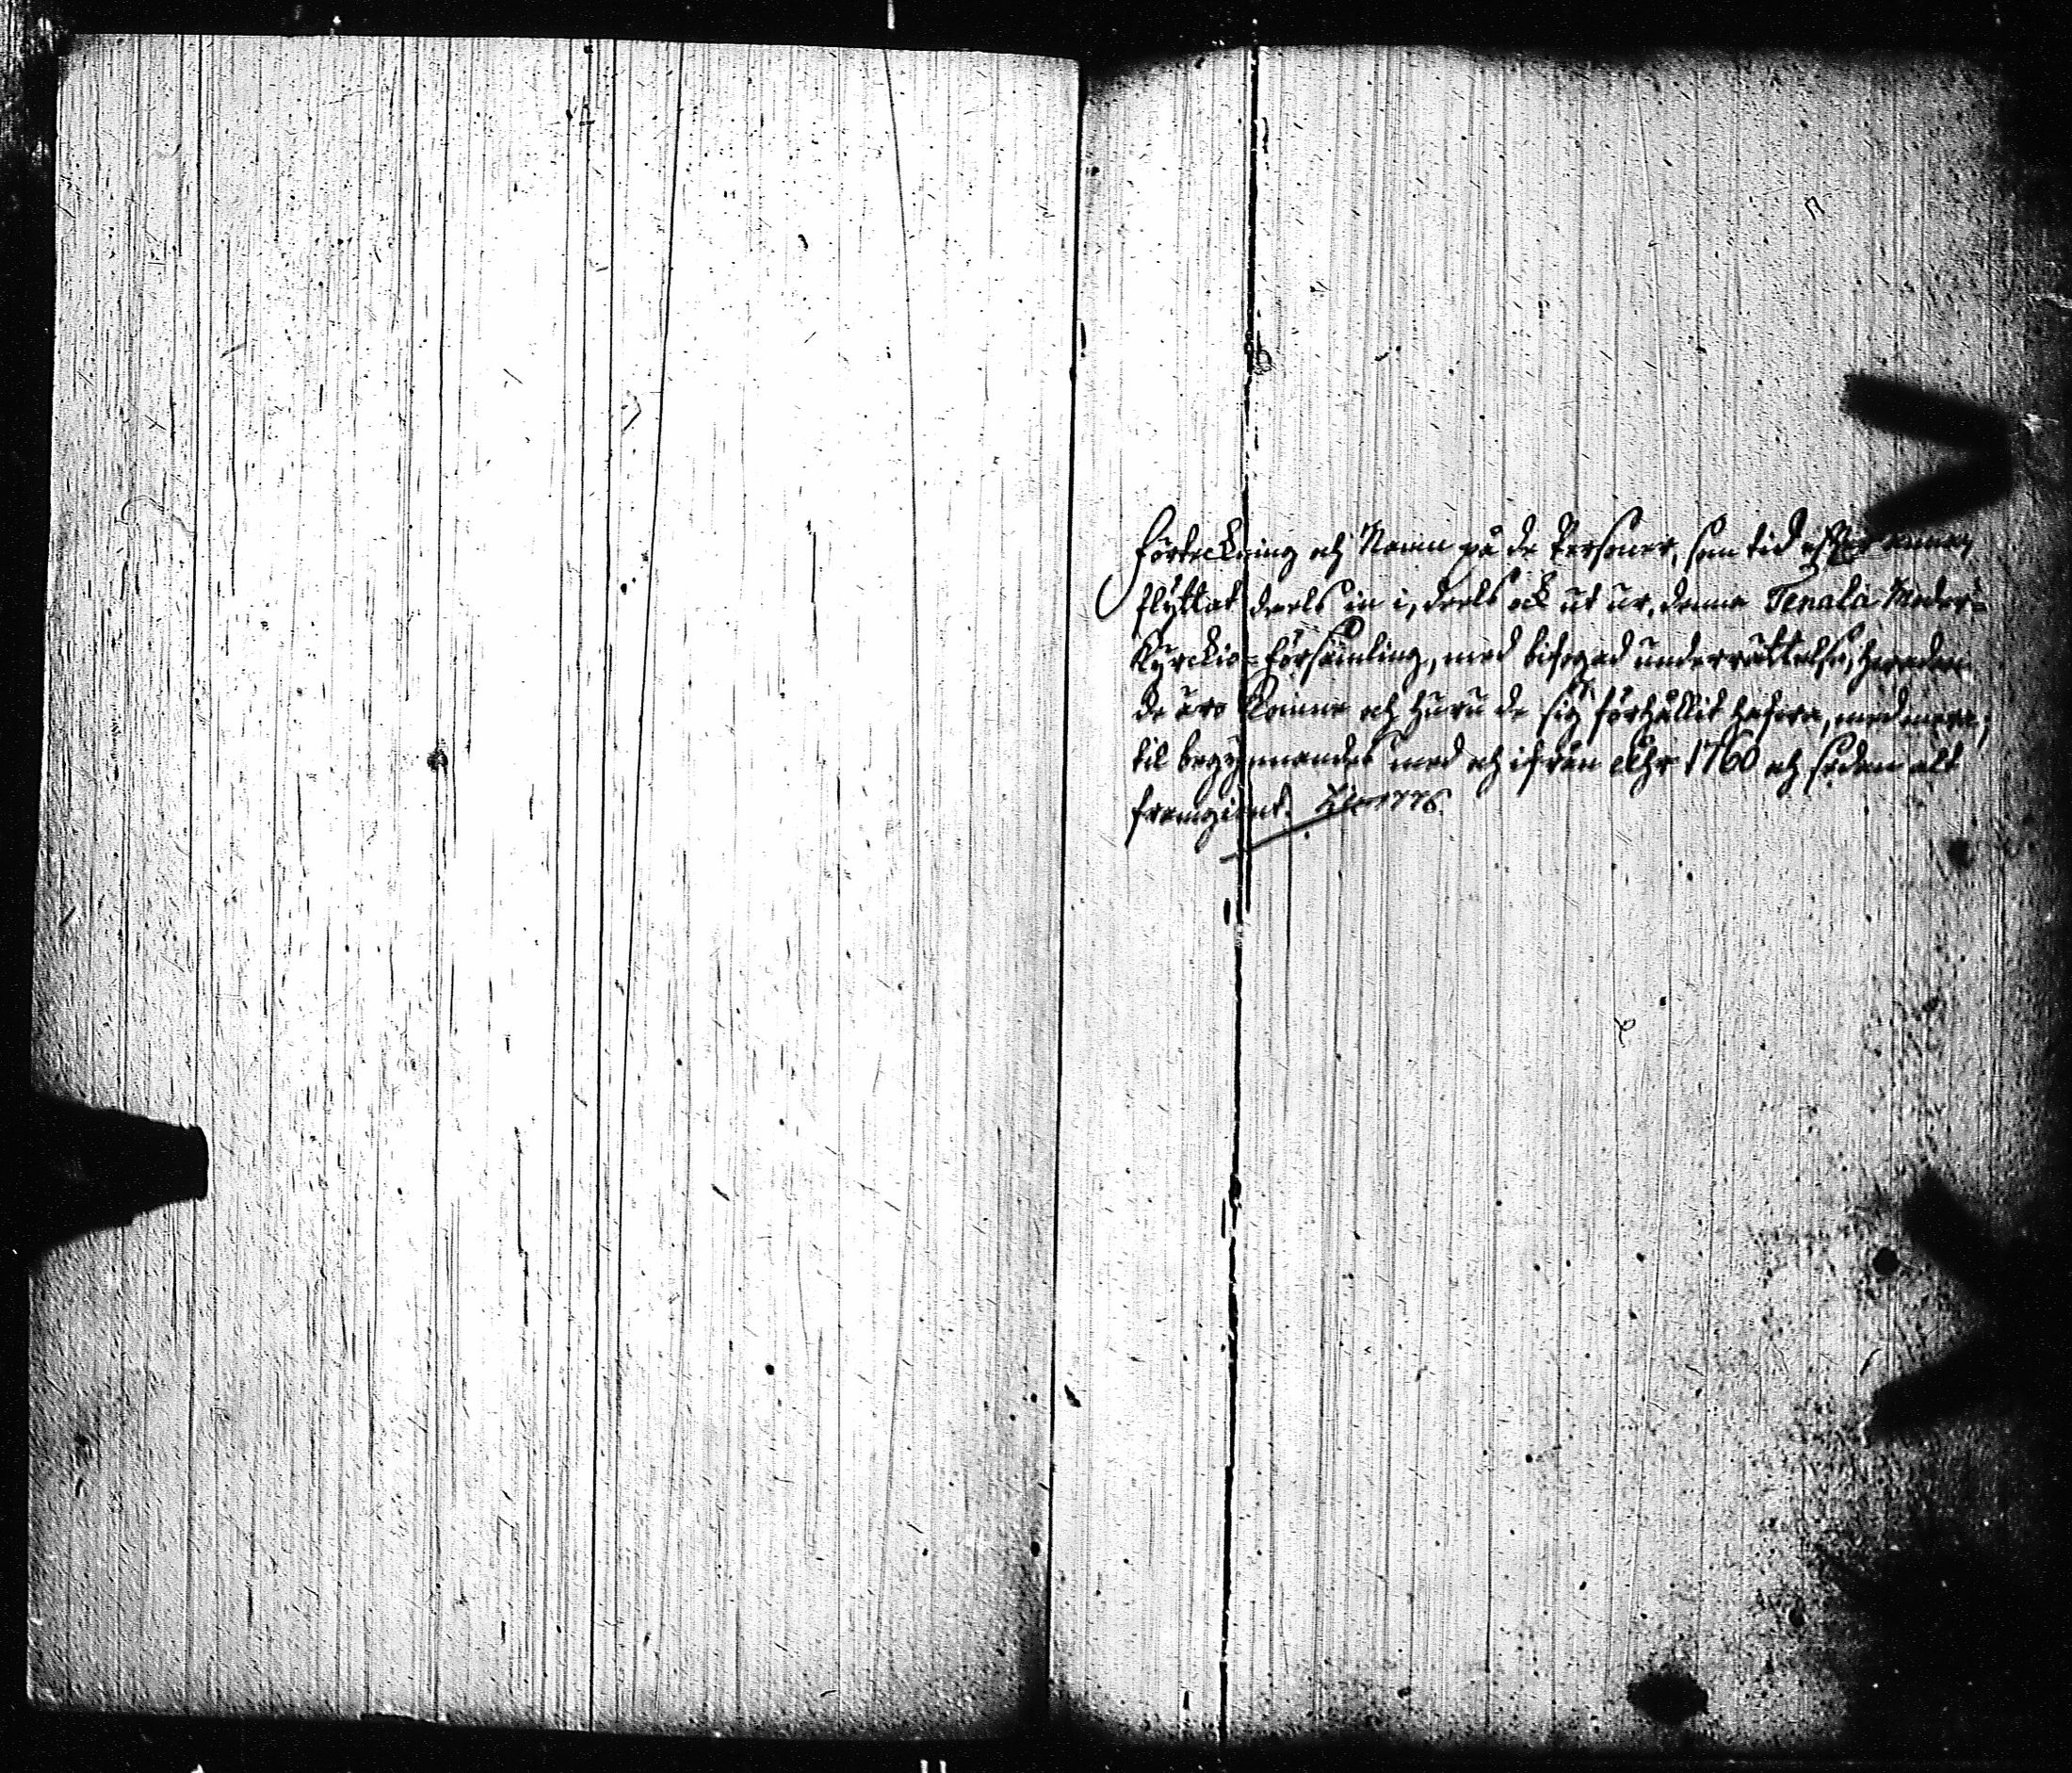 Förteckning och Namn på de Personer, som tid efter annan
flyttat deels in i, deels ock ut ur, denna Tenala Moder-
Kyrckio-Församling, med bifogad underrättelse, hvadan
de äro komne och huru de sig förhållit hafva, med mera;
til begynnandes med och ifrån Åhr 1760 och sedan alt
framgient.